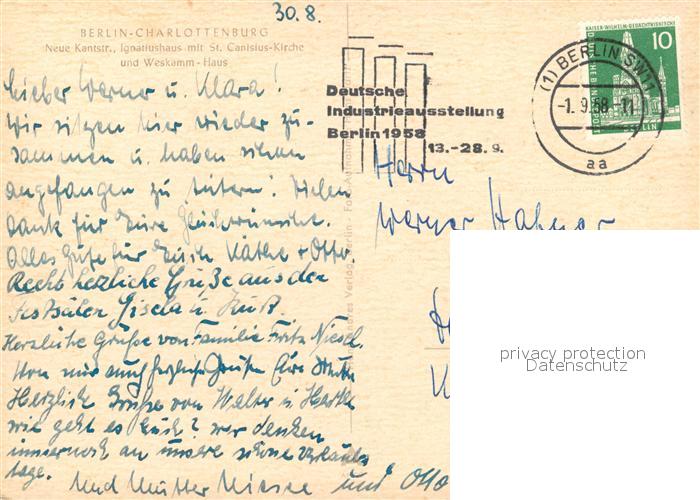 30. 8.
BERLIN-CHARLOTTENBURG
Neue Kantstr., Ignatiushaus mit St. Canisius-Kirche
und Weskamm-Haus
Lieber Werner u. Klara!
Wir sitzen hier wieder zu-
sammen u. haben schon
angefangen zu feiern! Vielen
Dank für Eure Glückwünsche.
Alles Gute für Euch Käthe + Otto.
Recht herzliche Grüße aus den
Gisela u.
Herzliche Grüße von Familie Fritz Niesel.
Von mir auch Grüße Eure Mutter
Herzliche Grüße von Walter u. Hertha
wie geht es Euch? wir denken
immer noch an unsere schöne Urlaubs
tage.
Und Mutter und Otto
Deutsche
Industrieausstellung
Berlin 1958
13.-28.9.
(1) BERLIN SW11
-1.9.58-11
aa
KAISER-WILHELM-GEDÄCHTNISKIRCHE
10
DEUTSCHE BUNDESPOST
BERLIN
Herrn
Werner Hahner
privacy protection
Datenschutz